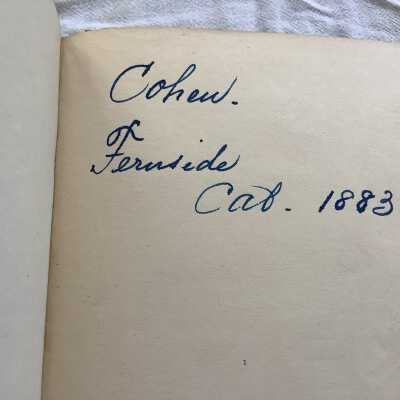 Cohen.
Fernside
Cal. 1883